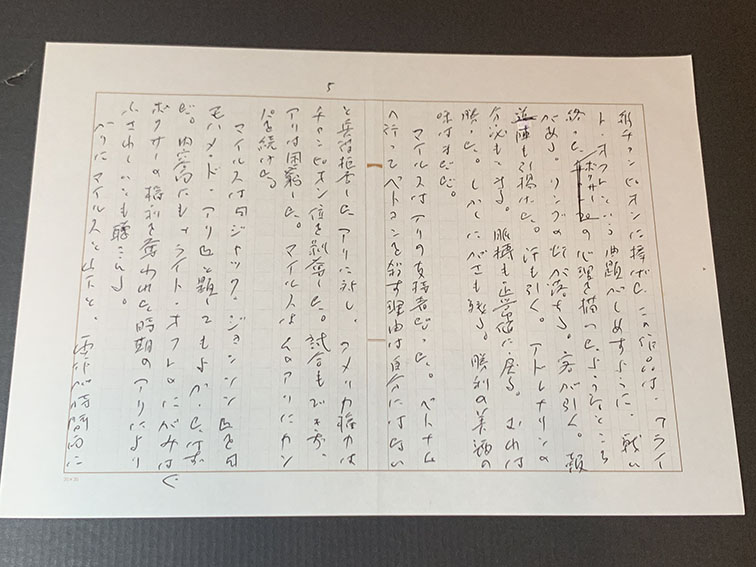 5
拳チャンピオンに捧げたこの作品は、フライ
ト・オフという曲題がしめすように、戦い
終った ボクサーの心理を描ったようなところ
がある。リングの灯が落ちる。客が引く。報
道陣も引揚げた。汗も引く。アドレナリンの
分泌もへる。脈搏も正常値に戻る。おれは
勝った。しかしにがさも残る。勝利の美酒の
味はまだだ。
マイルスはアリの支持者だった。ベトナム
へ行ってベトコンを殺す理由は自分にはない
と兵役拒否したアリに対し、アメリカ権力は
チャンピオン位を剥奪した。試合もできず、
アリは困窮した。マイルスはそのアリにカン
パを続けた。
マイルスは『ジャック・ジョンソン』を『
モハメッド・アリ』と題してもよかったはず
だ。内容的にも、ライト・オフのにがみはむ
ボクサーの権利を奪われた時期のアリにより
ふさわしいとも聴こえる。
マイルスと